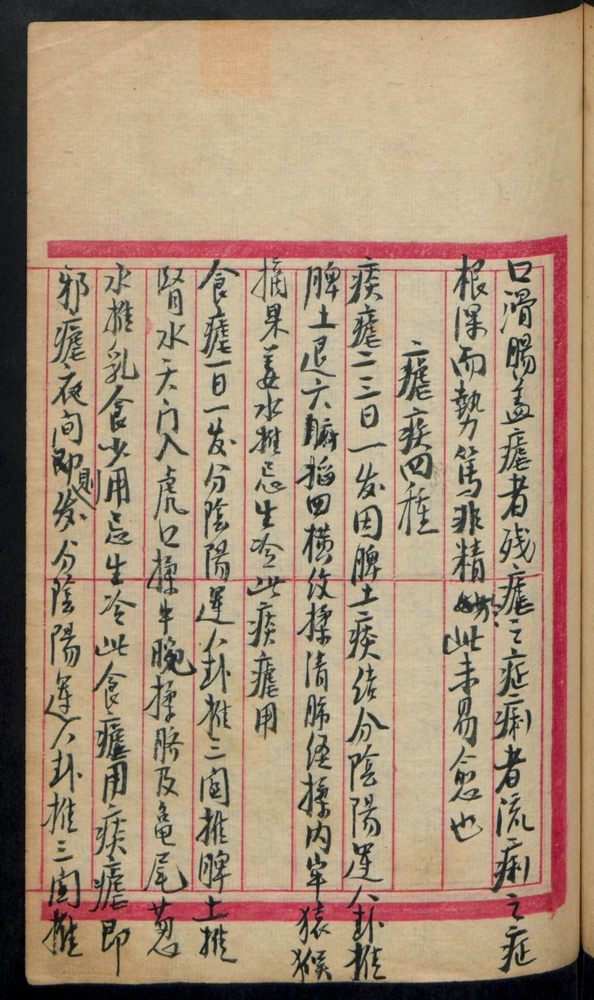 口滑腸盖瘧者残瘧之症痢者流痢之症
根深而勢篤非精於此未易愈也
瘧疾四種
痰瘧二三日一发因脾土痰结分陰陽運八卦推
脾土退六腑掐四横纹揉清肺经揉内牢猿猴
摘果姜水推忌生冷此痰瘧用
食瘧一日一发分陰陽運八卦推三関推脾土推
腎水天门入虎口揉牛腕揉脐及龟尾葱
水推乳食少用忌生冷此食瘧用痰瘧即
邪瘧夜间即则发分陰陽運八卦推三関推